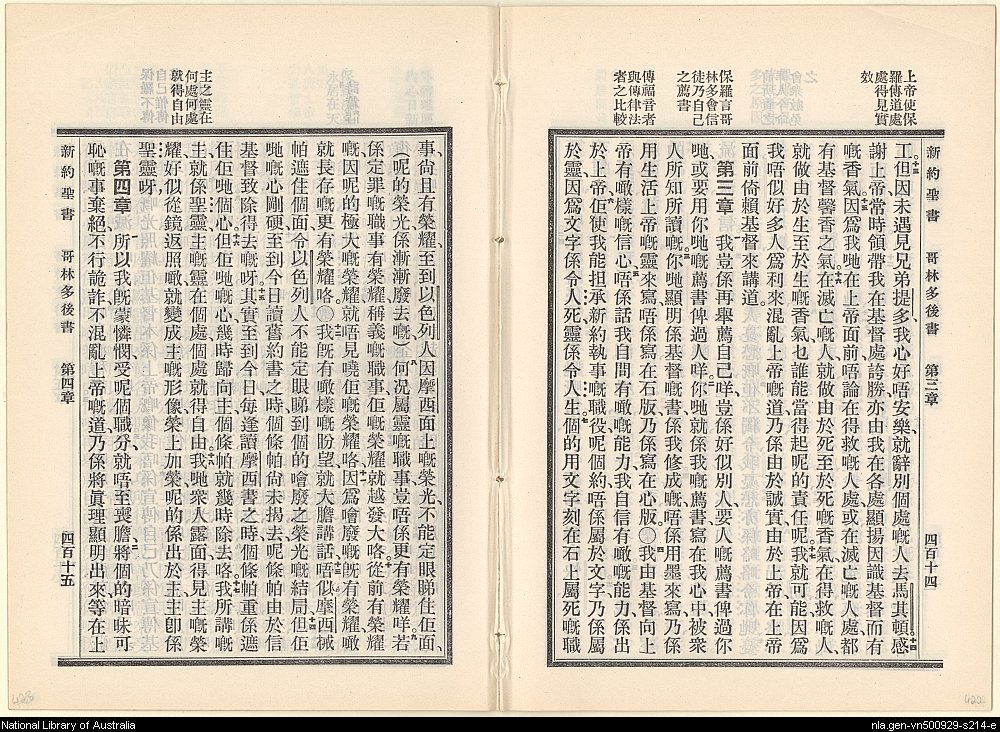 新約聖書 哥林多後書 第三章 四百十四
上帝使保
羅傳道處
處得見實
效
保羅言哥
林多會信
徒乃自己
之薦書
傳福音者
與傳律法
者之比較
工但因未遇見兄弟提多我心好唔安樂、就辭別個處嘅人去馬其頓、十四感
謝上帝常時領帶我在基督處誇勝亦由我在各處顯揚因識基督而有
嘅香氣、十五因爲我哋在上帝面前唔論在得救嘅人處或在滅亡嘅人處、都
有基督馨香之氣、十六在滅亡嘅人就做由於死至於死嘅香氣在得救嘅人、
就做由於生至於生嘅香氣乜誰能當得起呢的責任呢、十七我就可能、因爲
我唔似好多人爲利來混亂上帝嘅道乃係由於誠實由於上帝在上帝
面前倚賴基督來講道。
第三章 一我豈係再舉薦自己咩豈係好似別人、要人嘅薦書俾過你
哋或要用你哋嘅薦書俾過人咩、二你哋就係我嘅薦書寫在我心中被衆
人所知所讀嘅、三你哋顯明係基督嘅書係我修成嘅唔係用墨來寫乃係
用生活上帝嘅靈來寫唔係寫在石版乃係寫在心版。四我由基督向上
帝有噉樣嘅信心、五唔係話我自問有噉嘅能力我自信有噉嘅能力係出
於上帝、六佢使我能担承新約執事嘅職役呢個約唔係屬於文字乃係屬
於靈因爲文字係令人死靈係令人生、七個的用文字刻在石上屬死嘅職
主之靈在
何處何處
就得自由
事、尙且有榮耀、至到以色列人因摩西面上嘅榮光、不能定眼睇住佢面、
（呢的榮光係漸漸廢去嘅）八何况屬靈嘅職事豈唔係更有榮耀咩、九若
係定罪嘅職事有榮耀、稱義嘅職事、佢嘅榮耀就越發大咯、十從前有榮耀
嘅、因呢的極大嘅榮耀就唔見曉佢嘅榮耀咯、十一因爲噲廢嘅旣有榮耀噉
就長存嘅更有榮耀咯。十二我旣有噉樣嘅盼望就大膽講話、十三唔似摩西械
帕遮住個面令以色列人不能定眼睇到個的噲廢之榮光嘅結局、十四但佢
哋嘅心剛硬、至到今日讀舊約書之時個條帕尙未揭去呢條帕由於信
基督致除得去嘅呀、十五其實至到今日每逢讀摩西書之時個條帕重係遮
住佢哋個心、十六但佢哋嘅心幾時歸向主個條帕就幾時除去咯、十七我所講嘅
主就係聖靈主嘅靈在個處、個處就得自由、十八我哋衆人露面得見主嘅榮
耀好似從鏡返照噉就變成主嘅形像榮上加榮呢的係出於主主卽係
聖靈呀。
第四章 一所以我旣蒙憐憫受呢個職分、就唔至喪膽、二將個的暗昧可
恥嘅事棄絕、不行詭詐不混亂上帝嘅道乃係將眞理顯明出來、等在上
新約聖書 哥林多後書 第四章 四百十五
National Library of Australia
nla.gen-vn500929-s214-e